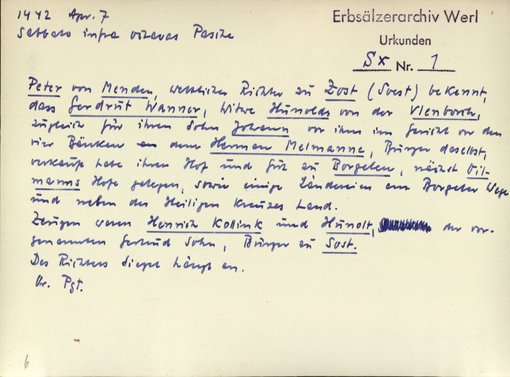 1442 Apr. 7
Sabbato infra octavas Pasche
Erbsälzerarchiv Werl
Urkunden
Sx Nr. 1
Peter von Menden, weltlicher Richter zu Zost (Soest) bekennt,
dass Gerdrut Wanner, Witwe Hunolds von der
zugleich für ihren Sohn Johann vor ihm im Gericht vor den
vier Bänken an dem Herman Meimanne, Bürger daselbst,
verkauft habe ihren Hof und Gut zu Borgelen, nächst Vil-
manns Hofe gelegen, sowie einige Ländereien am Borgeler Wege
und neben des Heiligen Kreuzes Land.
Zeugen waren Henrich Kollink und Hunolt, der vor-
genannten Gertrud Sohn, Bürger zu Sost.
Des Richters Siegel hängt an.
Or. Pgt.
6